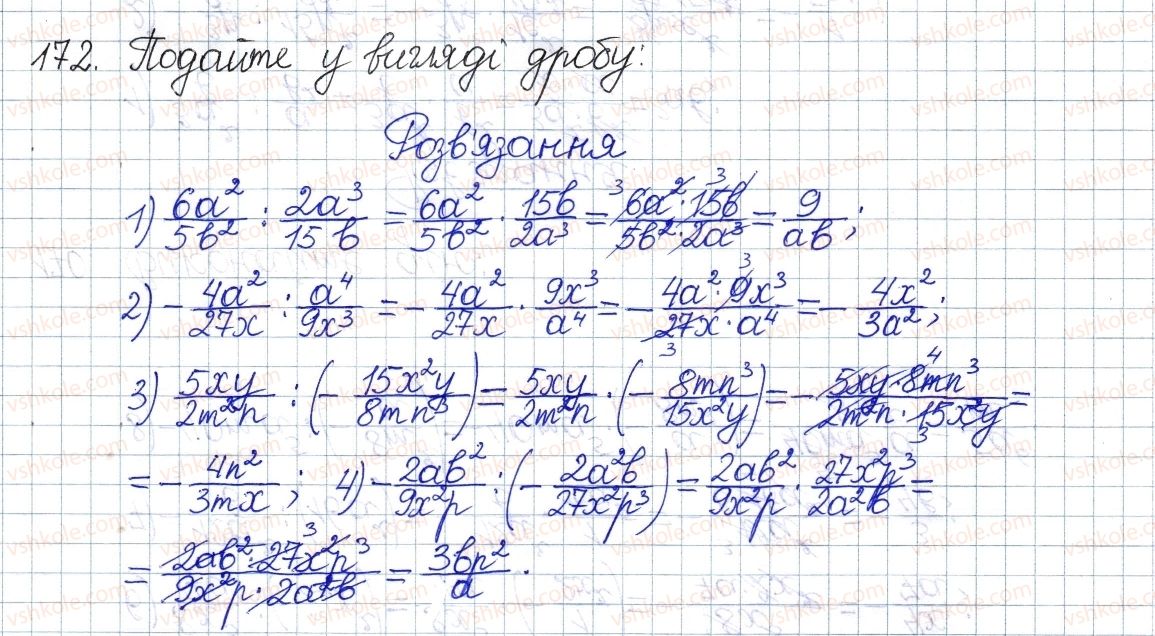 172. Подайте у вигляді дробу:
Розв'язання
1) 6a²/5b² : 2a³/15b = 6a²/5b² · 15b/2a³ = 6a²·15b/5b²·2a³ = 9/ab;
2) - 4a²/27x : a⁴/9x³ = - 4a²/27x · 9x³/a⁴ = - 4a²·9x³/27x·a⁴ = - 4x²/3a²;
3) 5xy/2m²n : (- 15x²y/8mn³) = 5xy/2m²n · (- 8mn³/15x²y) = - 5xy·8mn³/2m²n·15x²y =
= - 4n²/3mx; 4) - 2ab²/9x²p : (- 2a²b/27x²p³) = 2ab²/9x²p · 27x²p³/2a²b =
= 2ab²·27x²p³/9x²p·2a²b = 3bp²/a.